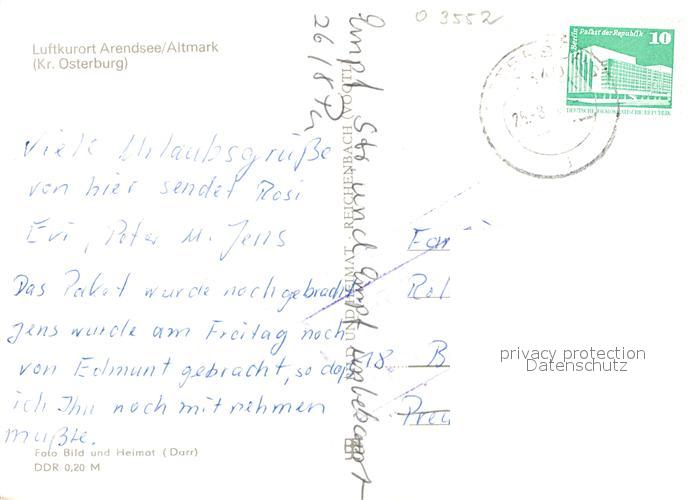 Luftkurort Arendsee/Altmark
(Kr. Osterburg)
Viele Urlaubsgrüße
von hier sendet Rosi
Evi, Peter u. Jens
Das Paket wurde nachgebracht
Jens wurde am Freitag noch
von Edmunt gebracht, so daß
ich Ihn noch mitnehmen
mußte.
Foto Bild und Heimat (Darr)
DDR 0,20 M
BILD UND HEIMAT · REICHENBACH (VOGTL
Empf Str und Empf unbekannt
26/8
0 3552
Berlin, Palast der Republik
10
DEUTSCHE DEMOKRATISCHE REPUBLIK
Fam
18. B
privacy protection
Datenschutz